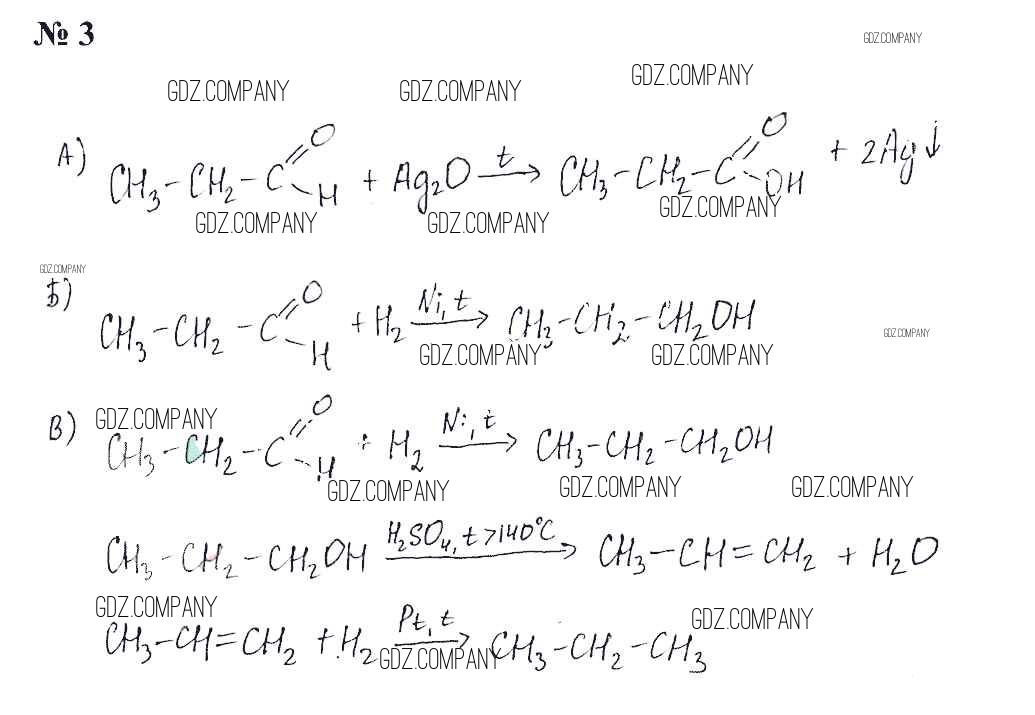 № 3
GDZ.COMPANY
GDZ.COMPANY GDZ.COMPANY GDZ.COMPANY
А) CH₃–CH₂–C(=O)–H + Ag₂O –t→ CH₃–CH₂–C(=O)–OH + 2Ag↓
GDZ.COMPANY GDZ.COMPANY GDZ.COMPANY
GDZ.COMPANY
Б) CH₃–CH₂–C(=O)–H + H₂ –Ni, t→ CH₃–CH₂–CH₂OH
GDZ.COMPANY
GDZ.COMPANY GDZ.COMPANY
GDZ.COMPANY
В) CH₃–CH₂–C(=O)–H + H₂ –Ni, t→ CH₃–CH₂–CH₂OH
GDZ.COMPANY GDZ.COMPANY GDZ.COMPANY
CH₃–CH₂–CH₂OH –H₂SO₄, t>140°C→ CH₃–CH=CH₂ + H₂O
GDZ.COMPANY GDZ.COMPANY
CH₃–CH=CH₂ + H₂ –Pt, t→ CH₃–CH₂–CH₃
GDZ.COMPANY